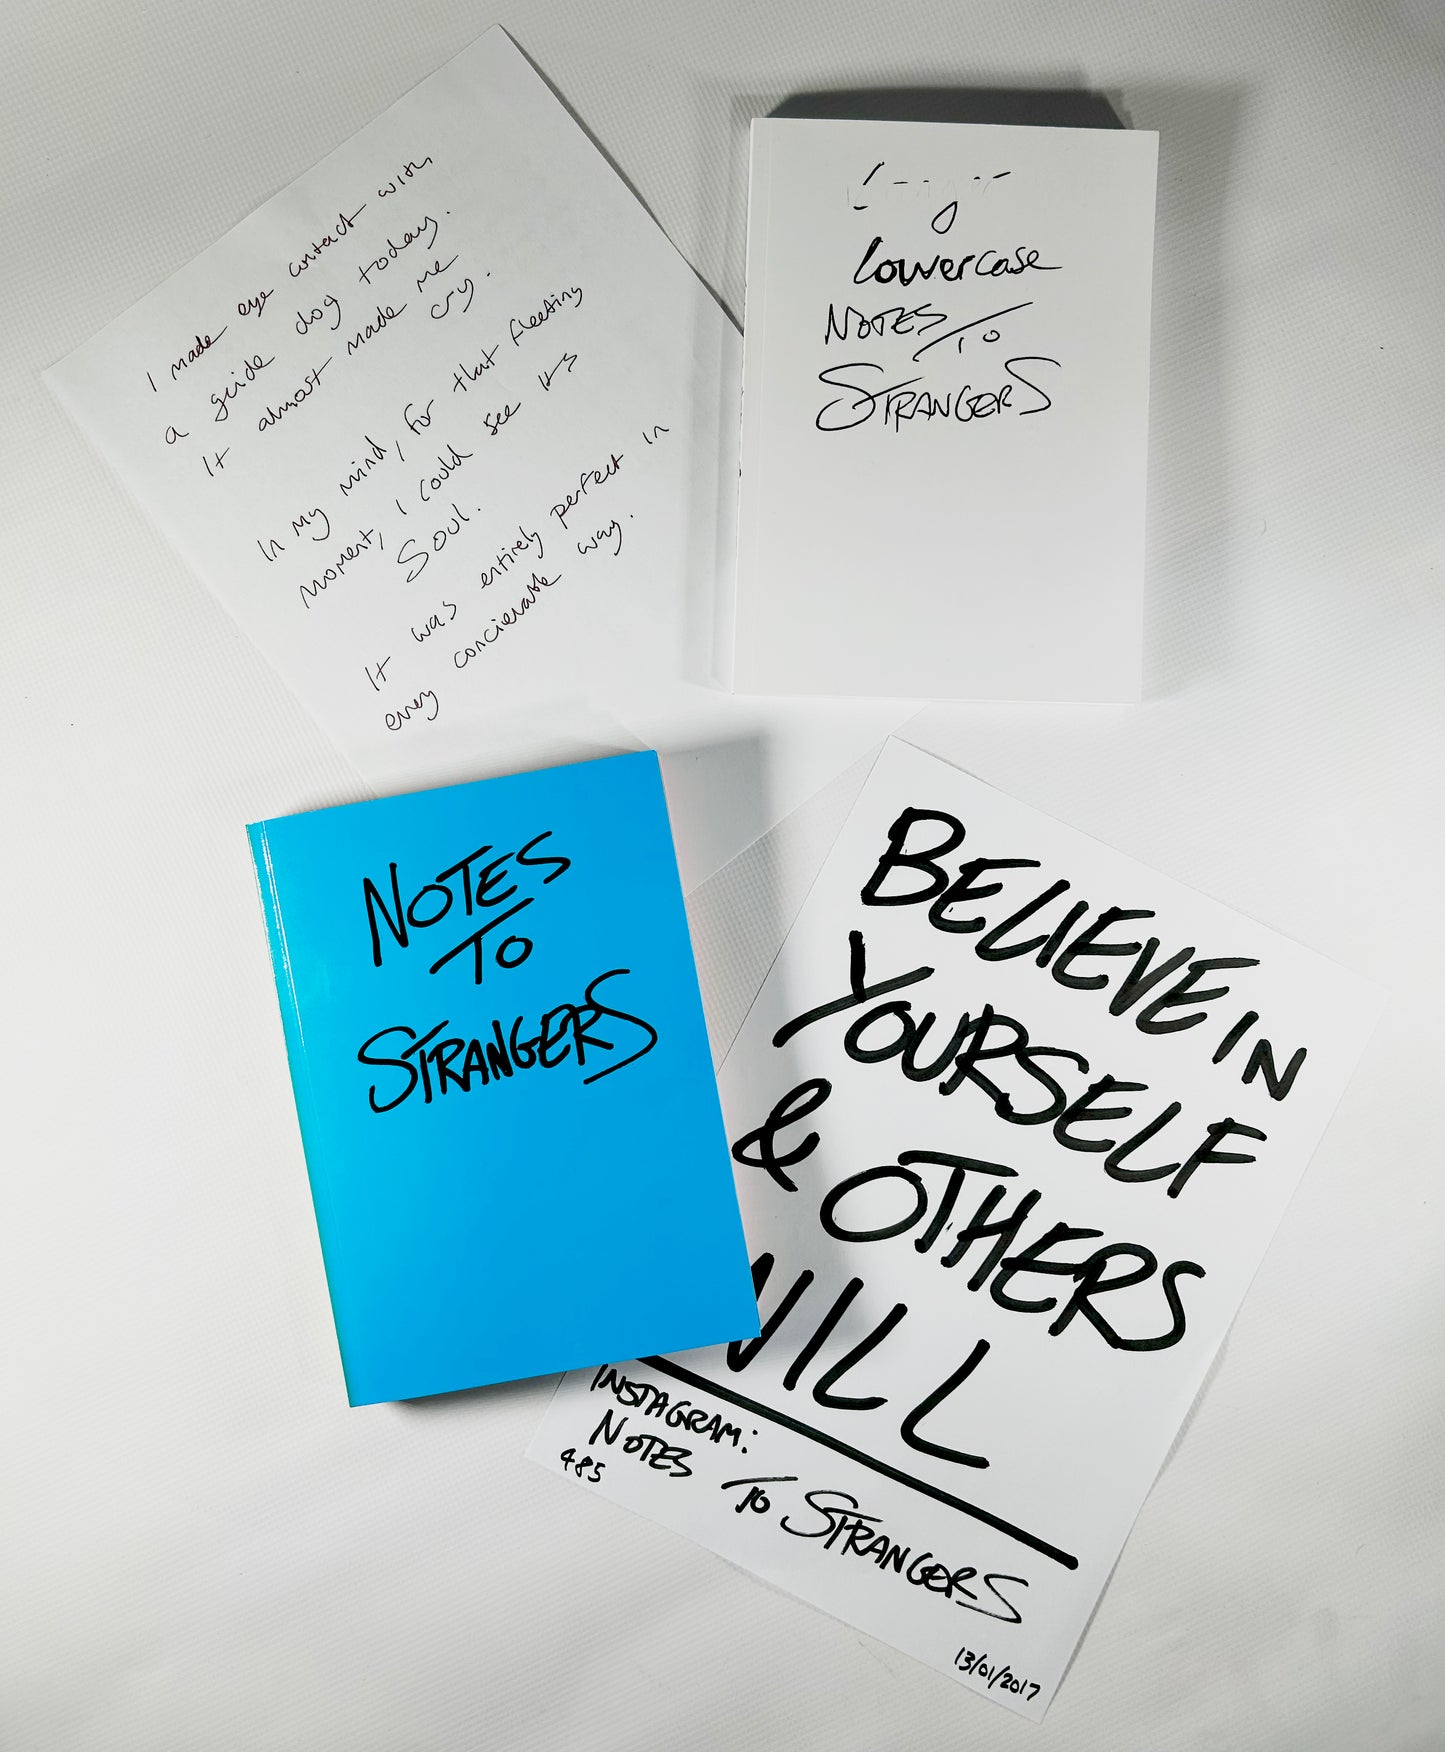 I made eye contact with
a guide dog today.
It almost made me
cry.
In my mind, for that fleeting
moment, I could see its
Soul.
It was entirely perfect in
every concievable way.
lowercase
NOTES TO
STRANGERS
NOTES
TO
STRANGERS
BELIEVE IN
YOURSELF
& OTHERS
WILL
INSTAGRAM:
NOTES TO STRANGERS
485
13/01/2017